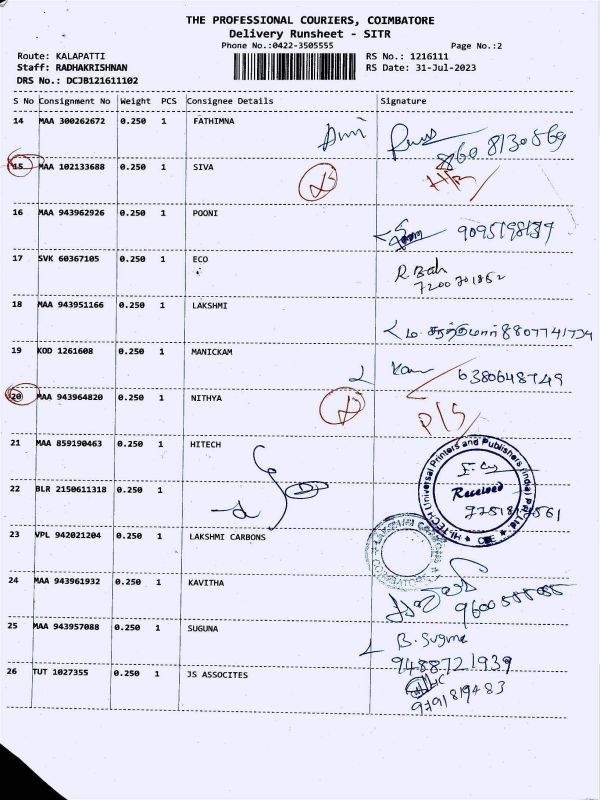 THE PROFESSIONAL COURIERS, COIMBATORE
Delivery Runsheet - SITR
Phone No.:0422-3505555 Page No.:2
Route: KALAPATTI RS No.: 1216111
Staff: RADHAKRISHNAN RS Date: 31-Jul-2023
DRS No.: DCJB121611102
S No Consignment No Weight PCS Consignee Details Signature
14 MAA 300262672 0.250 1 FATHIMNA
860 8130869
15 MAA 102133688 0.250 1 SIVA
16 MAA 943962926 0.250 1 POONI
17 SVK 60367105 0.250 1 ECO
7200701852
18 MAA 943951166 0.250 1 LAKSHMI
8807741734
19 KOD 1261608 0.250 1 MANICKAM
6380648749
20 MAA 943964820 0.250 1 NITHYA
P/S
21 MAA 859190463 0.250 1 HITECH
HI-TECH (Universal Printers and Publishers (India) Pvt. Ltd.
Received
22 BLR 2150611318 0.250 1
23 VPL 942021204 0.250 1 LAKSHMI CARBONS
24 MAA 943961932 0.250 1 KAVITHA
25 MAA 943957088 0.250 1 SUGUNA
B. Suguna
9488721939
26 TUT 1027355 0.250 1 JS ASSOCITES
9791819483